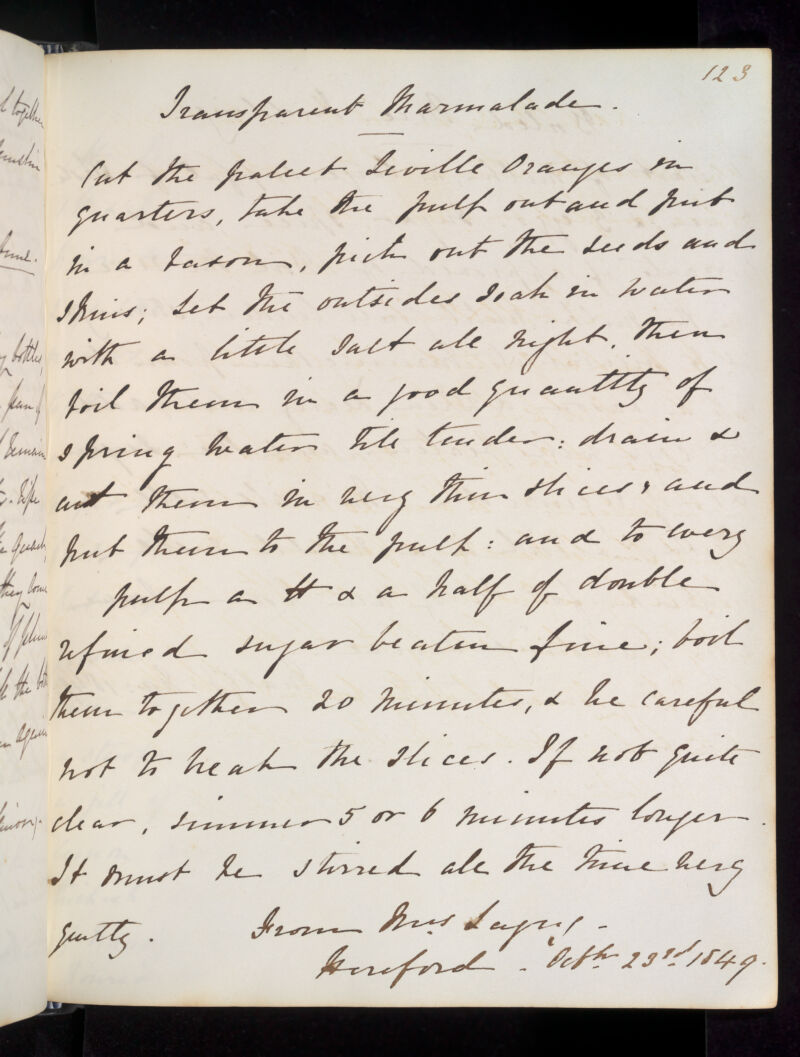 123
Transparent Marmalade.
Cut the palest Seville Oranges in
quarters, take the pulp out and put
in a bason, pick out the seeds and
skins; let the outsides soak in water
with a little salt all night, then
boil them in a good quantity of
spring water till tender: drain &
cut them in very thin slices, and
put them to the pulp: and to every
pulp a lb & a half of double
refined sugar beaten fine; boil
them together 20 minutes, & be careful
not to break the slices. If not quite
clear, simmer 5 or 6 minutes longer.
It must be stirred all the time very
gently. From Mrs
Hereford. Octbr 23rd 1849.
together
bottles
pan of
remain
ripe
they
of
the
again